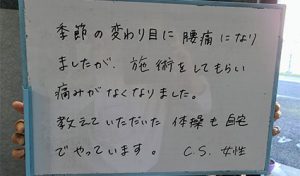 季節の変わり目に腰痛になり
ましたが、施術をしてもらい
痛みがなくなりました。
教えていただいた体操も自宅
でやっています。 C.S. 女性